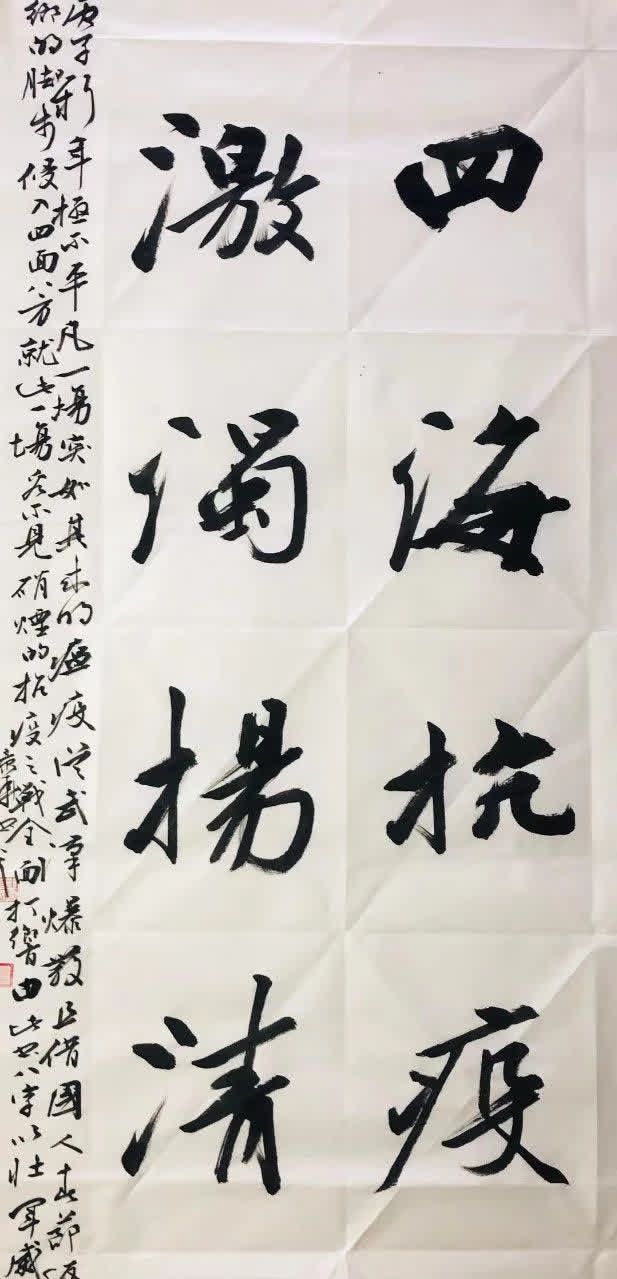 四海抗疫
激濁揚清
庚子新年極不平凡一場突如其来的瘟疫從武漢爆發且借國人春節返
鄉的脚步侵入四面八方就此一場看不見硝煙的抗疫之戰全面打響由此书八字以壯軍威